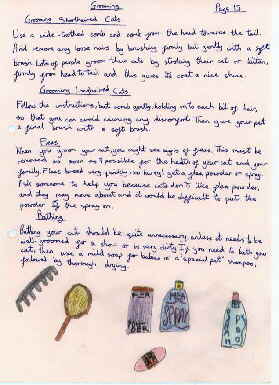 Grooming
Page 15
Grooming Shorthaired Cats
Use a wide-toothed comb and comb from the head towards the tail.
And remove any loose hairs by brushing firmly but gently with a soft
brush. Lots of people groom their cats by stroking their cat or kitten,
firmly from head to tail and this gives its coat a nice shine.
Grooming Longhaired Cats
Follow the instructions, but comb gently, holding on to each bit of hair,
so that you can avoid causing any discomfort. Then give your pet
a final brush with a soft brush.
Fleas
When you groom your cat, you might see signs of fleas. This must be
removed as soon as possible for the health of your cat and your
family. Fleas breed very quickly, so buy a flea powder or spray.
Ask someone to help you because cats don't like flea powder,
and they may move about and it could be difficult to put the
powder or the spray on.
Bathing
Bathing your cat should be quite unnecessary, unless it needs to be
well-groomed for a show or is very dirty. If you need to bath your
cat then use a mild soap for babies or a special pet shampoo,
followed by thorough drying.
FLEA
POWDER
FLEA
SPRAY